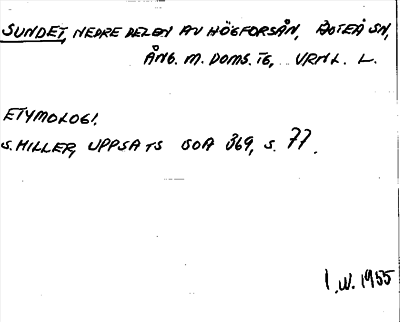 SUNDET, NEDRE DELEN AV HÖGFORSÅN, BOTEÅ SN,
ÅNG. M. DOMS. TG, VRML. L.
ETYMOLOGI.
S. HILLER, UPPSATS GOA 369, S. 77.
I.W. 1955